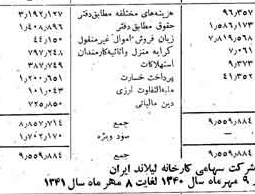 ۳٬۱۹۲٬۱۲۷ هزینه‌های مختلفه مطابق دفتر ۹۶٬۳۵۷
۱٬۴۰۸٬۸۹۲ حقوق مطابق دفتر ۱٬۵۸۶٬۱۷۳
۴۴٬۱۵۰ زیان فروش اموال غیر منقول ۷٬۸۱۹٬۵۶۸
۷۹۷٬۲۴۸ کرایه منزل و اثاثیه کارمندان ۷٬۰۶۱
۳۸۷٬۷۴۹ استهلاکات ۹٬۳۷۳
۱٬۲۰۰٬۶۵۱ پرداخت خسارت ۴۱٬۳۵۲
۱۰۱٬۰۴۳ مابه‌التفاوت ارزی
۷۲۵٬۸۵۰ دین مالیاتی
۸٬۸۵۷٬۷۱۴ جمع
۱٬۷۰۲٬۱۷۰ سود ویژه
۹٬۵۵۹٬۸۸۴ جمع ۹٬۵۵۹٬۸۸۴
شرکت سهامی کارخانه لیلاند ایران
۹ مهرماه سال ۱۳۴۰ لغایت ۸ مهرماه سال ۱۳۴۱